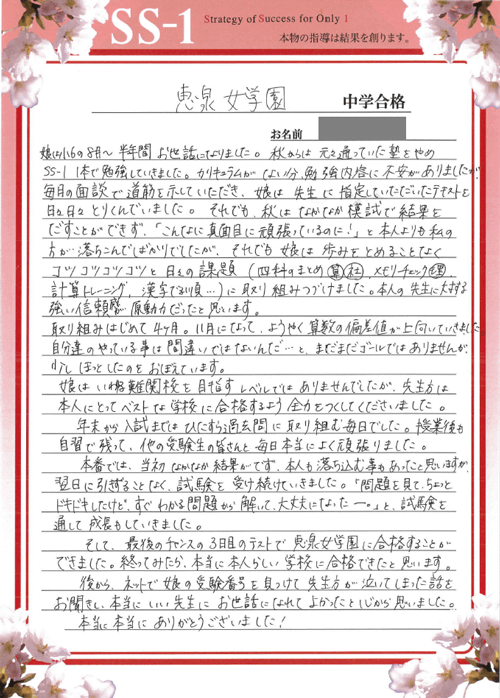 SS-1
Strategy of Success for Only 1
本物の指導は結果を創ります。
恵泉女学園 中学合格
お名前
娘は小6の8月〜半年間お世話になりました。秋からは元々通っていた塾をやめ
SS-1 1本で勉強していきました。カリキュラムがない分、勉強内容に不安がありましたが
毎日の面談で道筋を示していただき、娘は先生に指定していただいたテキストを
日々日々とりくんでいました。それでも、秋はなかなか模試で結果を
だすことができず、「こんなに真面目に頑張っているのに!」と本人よりも私の
方が落ちこんでばかりでしたが、それでも娘は歩みをとめることなく
コツコツコツコツと日々の課題(四科のまとめ算社、メモリーチェック理、
計算トレーニング、漢字でる順…)に取り組みつづけました。本人の先生に対する
強い信頼感が原動力だったと思います。
取り組みはじめて4ヶ月。11月になって、ようやく算数の偏差値が上向いていきました
自分達のやっている事は間違いではないんだ…と、まだまだゴールではありませんが、
少しほっとしたのをおぼえています。
娘はいわゆる難関校を目指すレベルではありませんでしたが、先生方は
本人にとってベストな学校に合格するよう全力をつくしてくださいました。
年末から入試まではひたすら過去問に取り組む毎日でした。授業後も
自習で残って、他の受験生の皆さんと毎日本当によく頑張りました。
本番では、当初なかなか結果がでず、本人も落ち込む事もあったと思いますが、
翌日に引きずることなく、試験を受け続けていきました。「問題を見て、ちょっと
ドキドキしたけど、すぐわかる問題から解いて、大丈夫になったー。」と、試験を
通して成長もしていきました。
そして、最後のチャンスの3日目のテストで恵泉女学園に合格することが
できました。終ってみたら、本当に本人らしい学校に合格できたと思います。
後から、ネットで娘の受験番号を見つけて先生方が泣いてしまった話を
お聞きし、本当にいい先生にお世話になれてよかったと心から思いました。
本当に本当にありがとうございました!